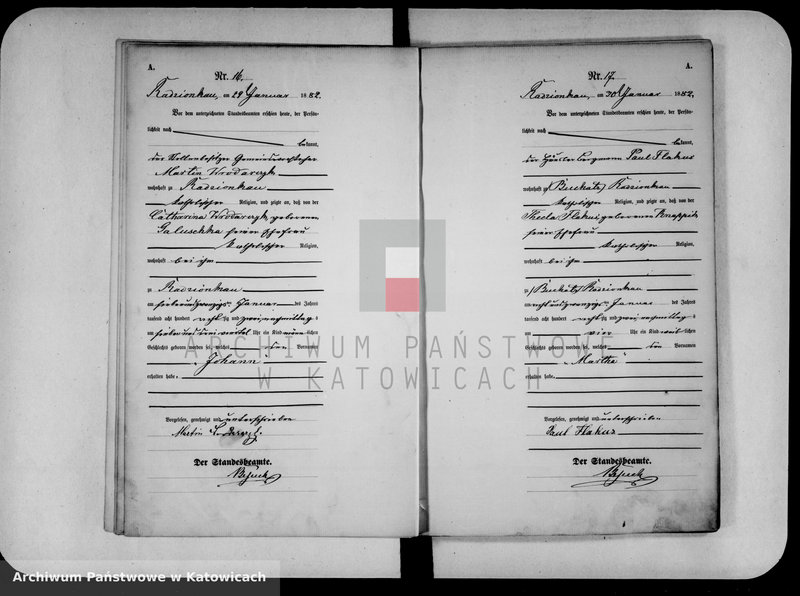 A.
Nr. 16.
Radzionkau, am 29 Januar 1882.
Vor dem unterzeichneten Standesbeamten erschien heute, der Persön-
lichkeit nach
bekannt,
der Stellenbesitzer
Martin Wrodarczyk
wohnhaft zu Radzionkau
katholischer Religion, und zeigte an, daß von der
Catharina Wrodarczyk geborenen
Galuschka seiner Ehefrau
katholischer Religion,
wohnhaft bei ihm
zu Radzionkau
am siebenundzwanzig. Januar des Jahres
tausend acht hundert acht zig und zwei nachmittags
um Uhr ein Kind männ lichen
Geschlechts geboren worden sei, welches den Vornamen
„Johann"
erhalten habe.
Vorgelesen, genehmigt und unterschrieben
Martin
Der Standesbeamte.
A.
Nr. 17.
Radzionkau, am 30 Januar 1882.
Vor dem unterzeichneten Standesbeamten erschien heute, der Persön-
lichkeit nach
bekannt,
der Häusler Bergmann Paul Flakus
wohnhaft zu (Buchatz) Radzionkau
katholischer Religion, und zeigte an, daß von der
Thecla Flakus geborenen
seiner Ehefrau
katholischer Religion,
wohnhaft bei ihm
zu (Buchatz) Radzionkau
am achtundzwanzig. Januar des Jahres
tausend acht hundert acht zig und zwei nachmittags
um vier Uhr ein Kind weib lichen
Geschlechts geboren worden sei, welches den Vornamen
„Martha"
erhalten habe.
Vorgelesen, genehmigt und unterschrieben
Paul Flakus
Der Standesbeamte.
ARCHIWUM PAŃSTWOWE
W KATOWICACH
Archiwum Państwowe w Katowicach